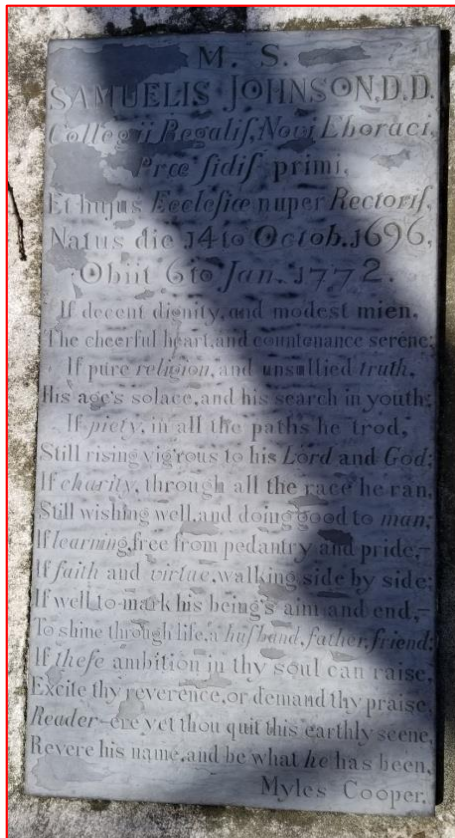 M. S.
SAMUELIS JOHNSON, D.D.
Collegii Regaliſ, Novi Eboraci,
Præ ſidiſ primi,
Et hujus Eccleſiæ nuper Rectoriſ.
Natus die 14to Octob. 1696,
Obiit 6to Jan. 1772.
If decent dignity, and modest mien,
The cheerful heart, and countenance serene;
If pure religion, and unsullied truth,
His age's solace, and his search in youth;
If piety, in all the paths he trod,
Still rising vig'rous to his Lord and God;
If charity, through all the race he ran,
Still wishing well, and doing good to man;
If learning, free from pedantry and pride,-
If faith and virtue, walking side by side;
If well to mark his being's aim and end,-
To shine through life, a huſband, father, friend;
If theſe ambition in thy soul can raise,
Excite thy reverence, or demand thy praise,
Reader-ere yet thou quit this earthly scene,
Revere his name, and be what he has been,
Myles Cooper.